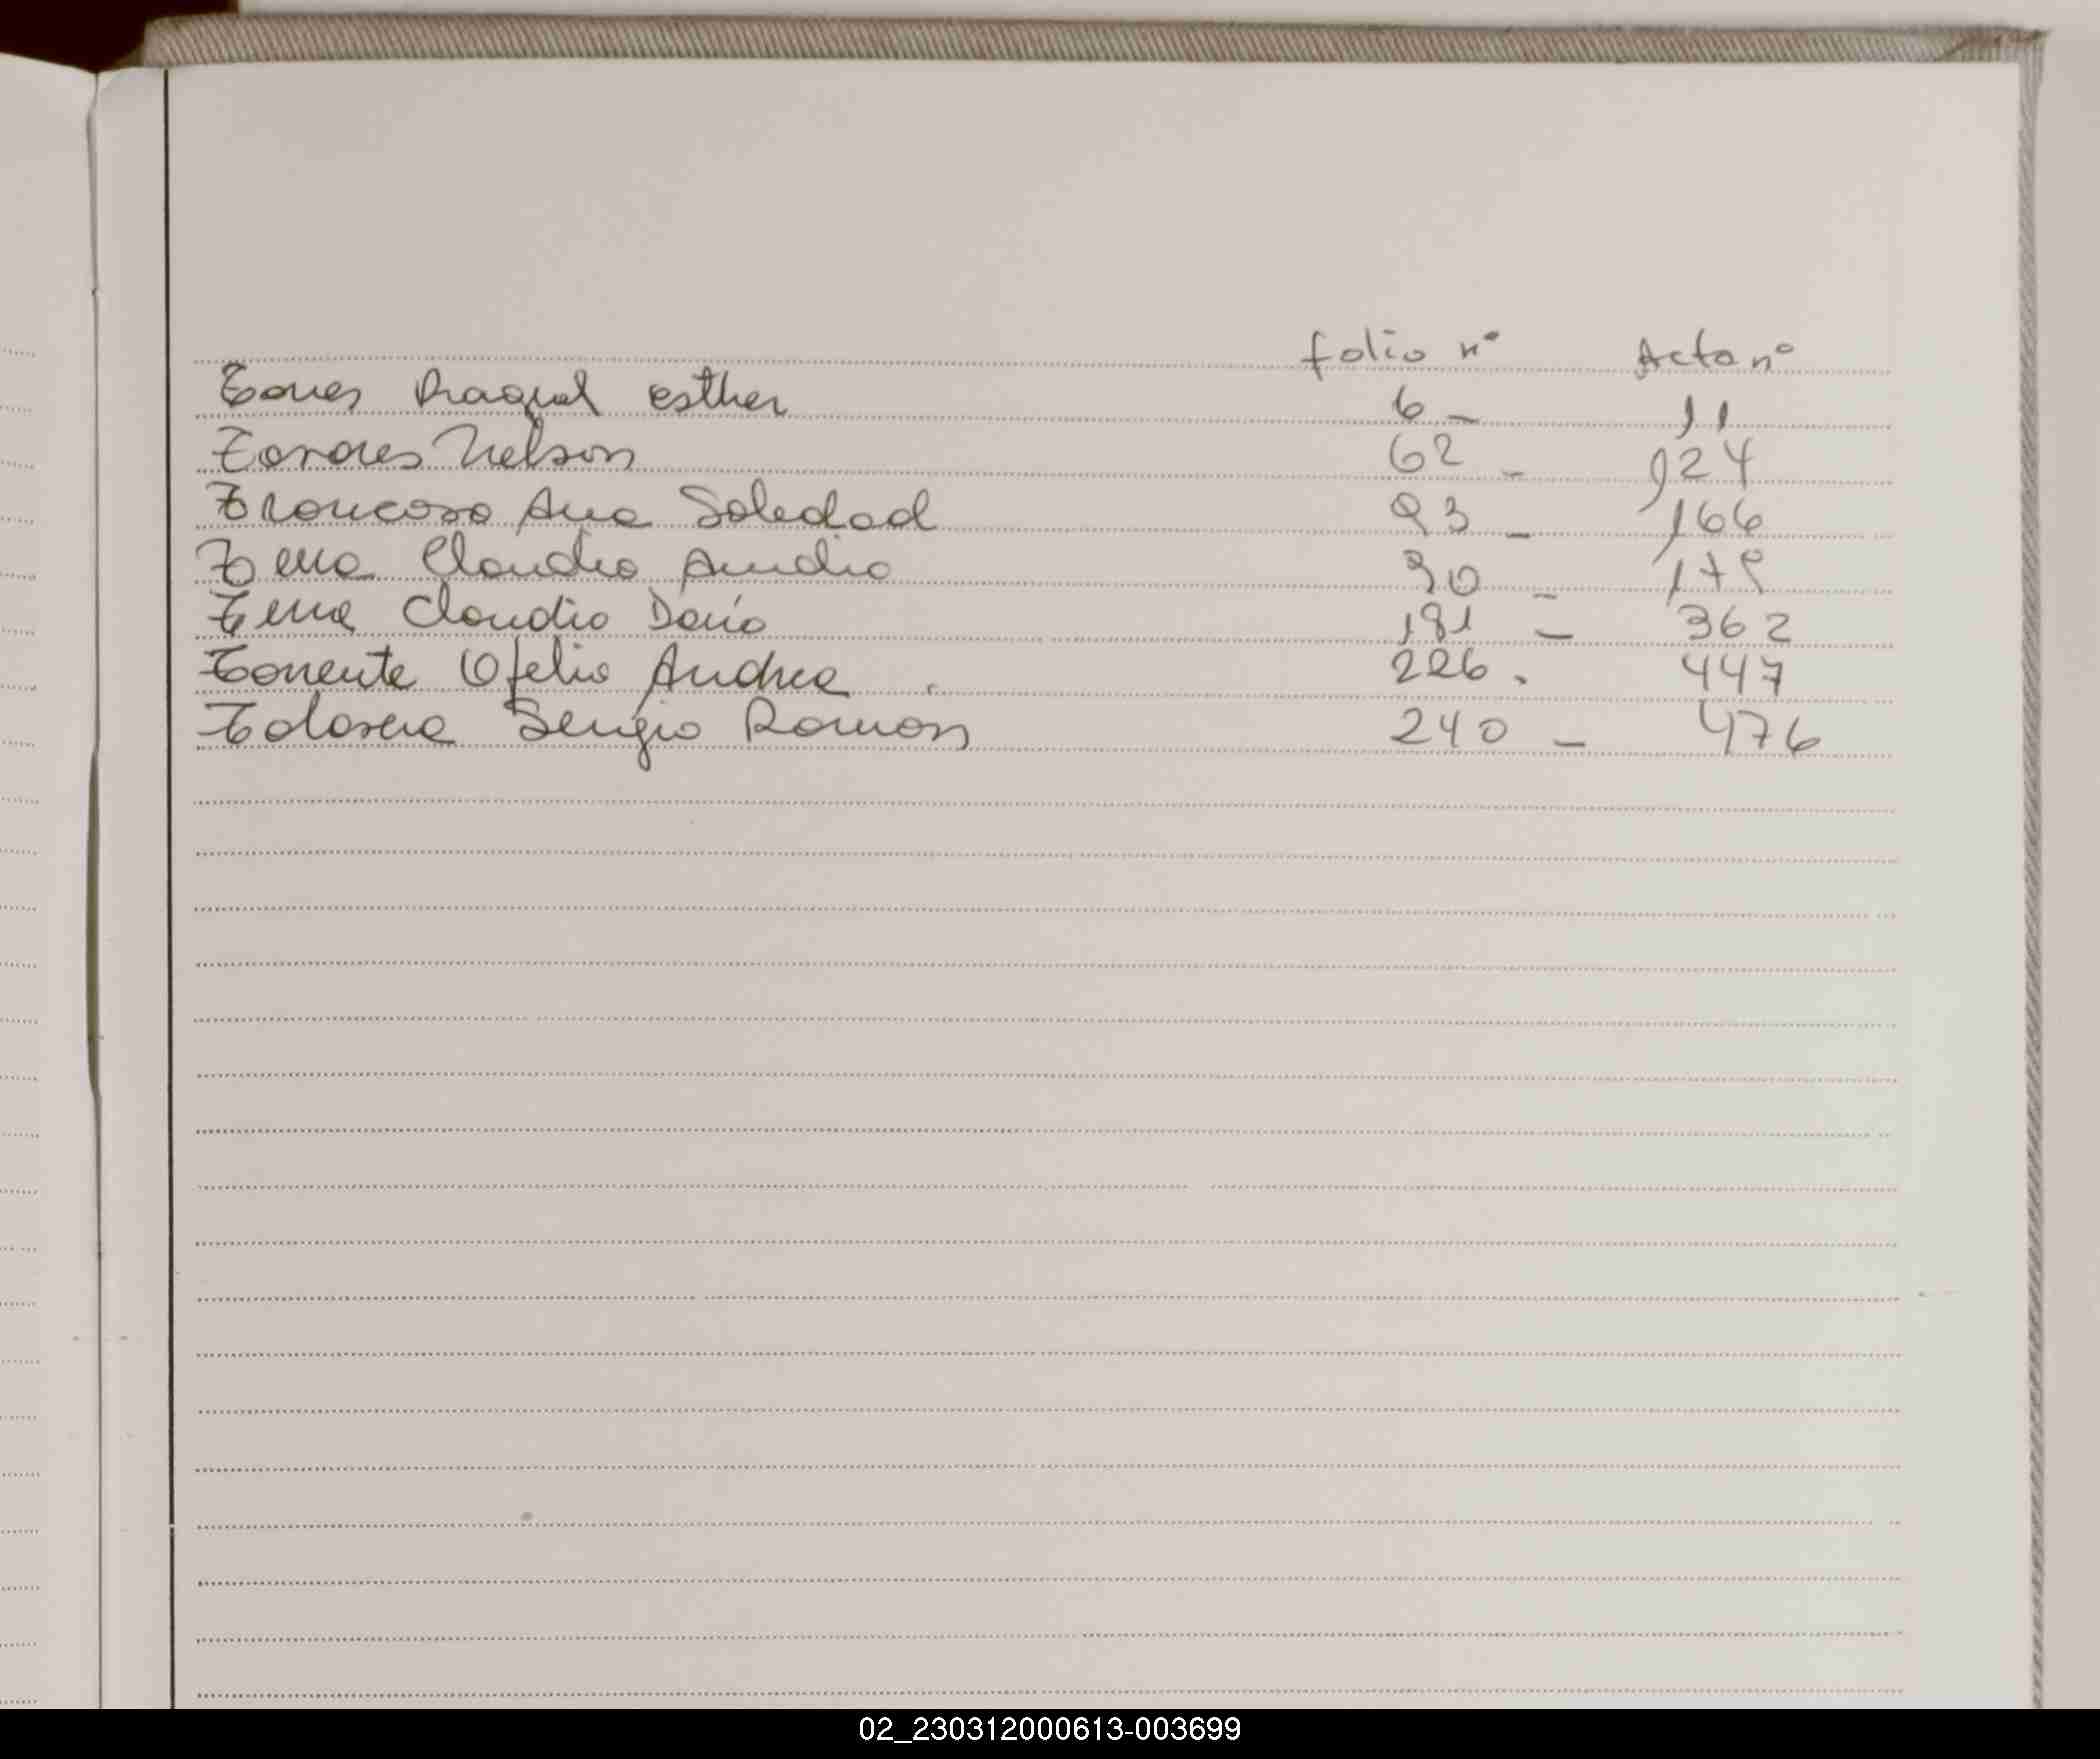 folio nº Acta nº
Torres Raquel Esther 6 - 11
Nelson 62 - 124
Troncoso Ana Soledad 83 - 166
Terra Claudia 90 - 179
Terra Claudio Darío 181 - 362
Torrente Ofelia Andrea . 226 . 447
Sergio Ramón 240 - 476
02_230312000613-003699